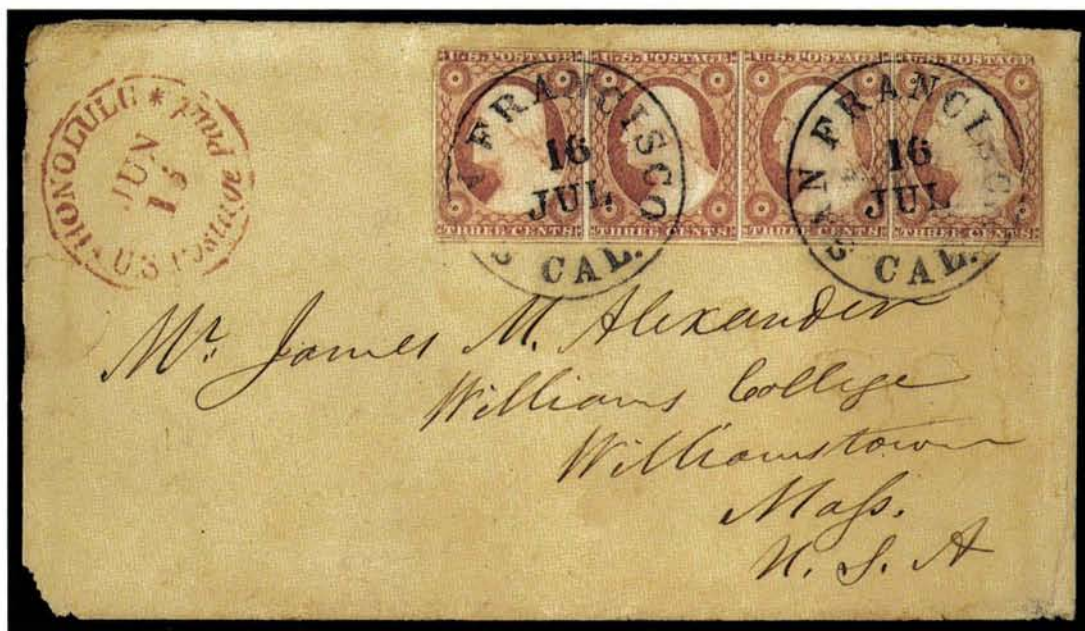 HONOLULU * U.S. Postage Paid.
JUN
15
U.S. POSTAGE U.S. POSTAGE U.S. POSTAGE U.S. POSTAGE
THREE CENTS THREE CENTS THREE CENTS THREE CENTS
SAN FRANCISCO
16
JUL
CAL.
SAN FRANCISCO
16
JUL
CAL.
Mr. James M. Alexander
Williams College
Williamstown
Mass.
U. S. A